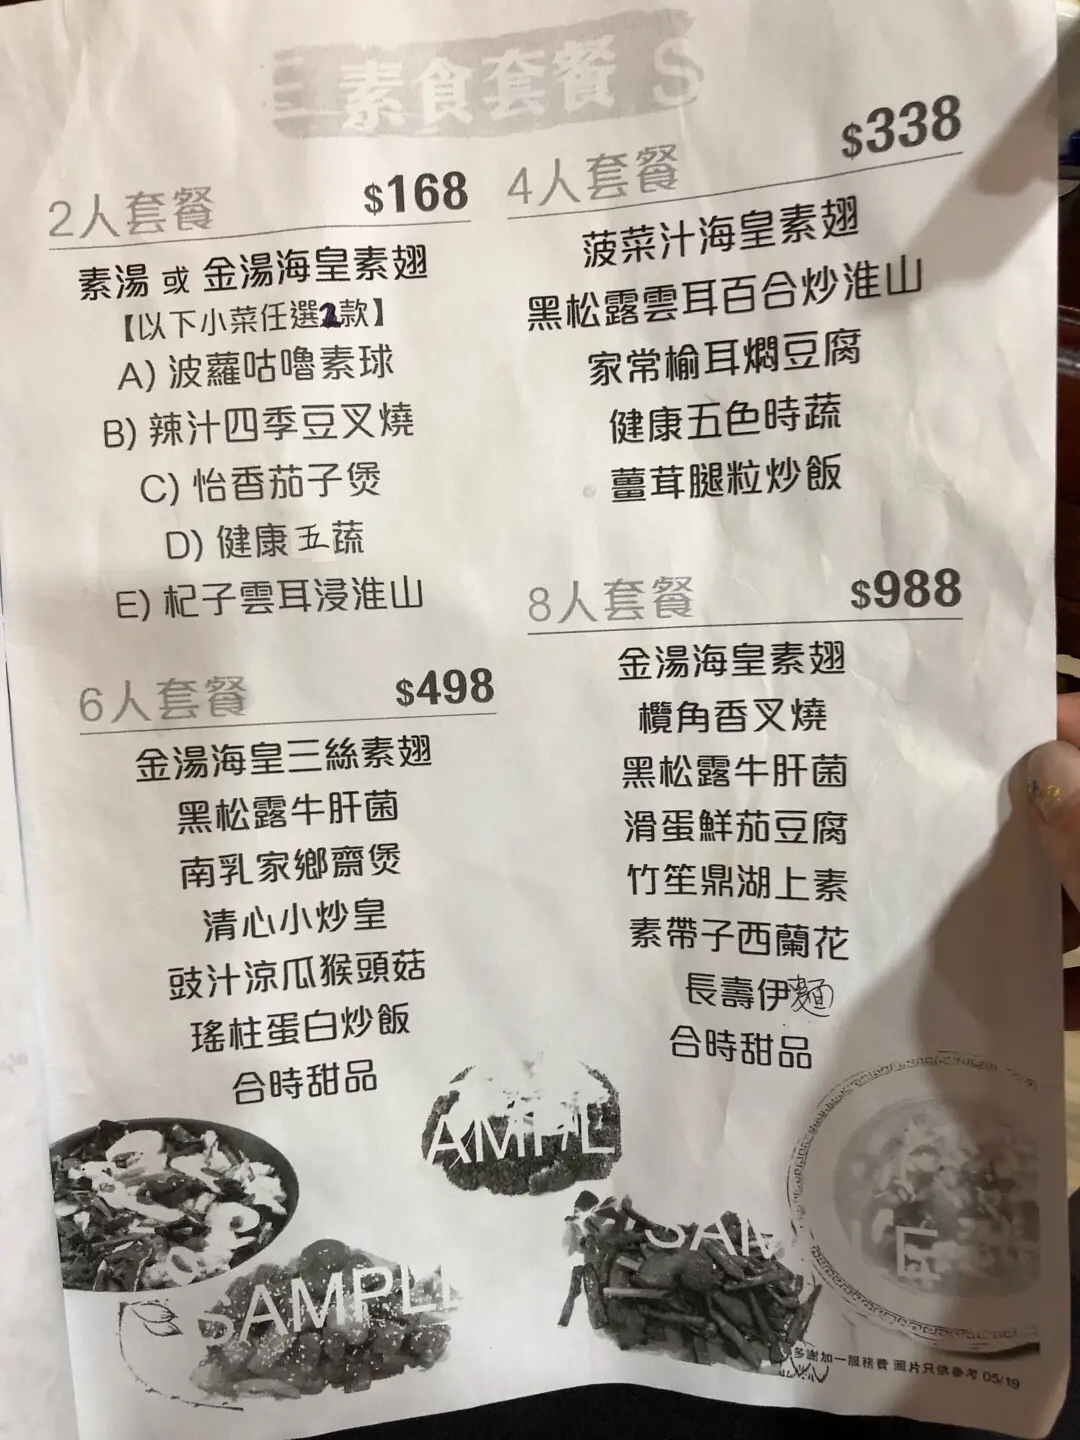 素食套餐
2人套餐 $168
素湯 或 金湯海皇素翅
【以下小菜任選2款】
A) 波蘿咕嚕素球
B) 辣汁四季豆叉燒
C) 怡香茄子煲
D) 健康五蔬
E) 杞子雲耳浸淮山
4人套餐 $338
菠菜汁海皇素翅
黑松露雲耳百合炒淮山
家常榆耳燜豆腐
健康五色時蔬
薑茸腿粒炒飯
6人套餐 $498
金湯海皇三絲素翅
黑松露牛肝菌
南乳家鄉齋煲
清心小炒皇
豉汁涼瓜猴頭菇
瑤柱蛋白炒飯
合時甜品
8人套餐 $988
金湯海皇素翅
欖角香叉燒
黑松露牛肝菌
滑蛋鮮茄豆腐
竹笙鼎湖上素
素帶子西蘭花
長壽伊麵
合時甜品
AMPL
SAMPL
SAM
E
多謝加一服務費 圖片只供參考 05/19